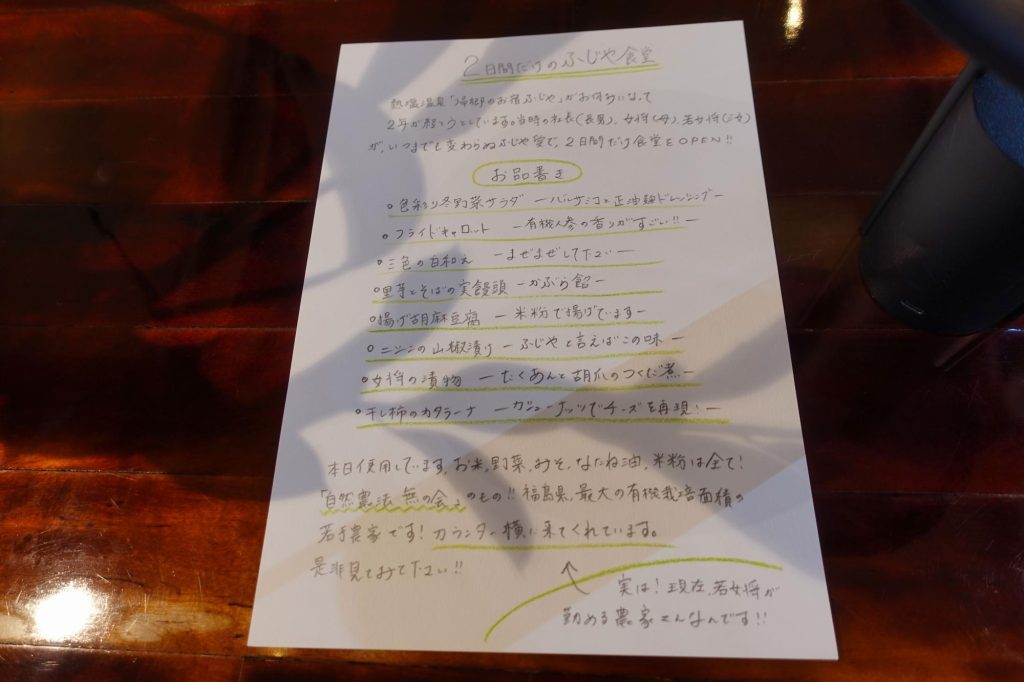 2日間だけのふじや食堂
熱塩温泉「帰郷のお宿ふじや」がお休みになって
2年が経とうとしています。当時の社長(長男)、女将(母)、若女将(三女)
が、いつまでも変わらぬふじや愛で、2日間だけ食堂をOPEN!!
お品書き
○色彩り冬野菜サラダ ーバルサミコと正油麹ドレッシングー
○フライドキャロット ー有機人参の香りがすごい!!ー
○三色の白和え ーまぜまぜして下さいー
○里芋とそばの実饅頭 ーかぶら餡ー
○揚げ胡麻豆腐 ー米粉で揚げていますー
○ニシンの山椒漬け ーふじやと言えばこの味ー
○女将の漬物 ーたくあんと胡瓜のつくだ煮ー
○干し柿のカタラーナ ーカシューナッツでチーズを再現!ー
本日使用しています、お米、野菜、みそ、なたね油、米粉は全て!
「自然農法 無の会」のもの!! 福島県、最大の有機栽培面積の
若手農家です! カウンター横に来てくれています。
是非見てみて下さい!!
実は! 現在、若女将が
勤める農家さんなんです!!